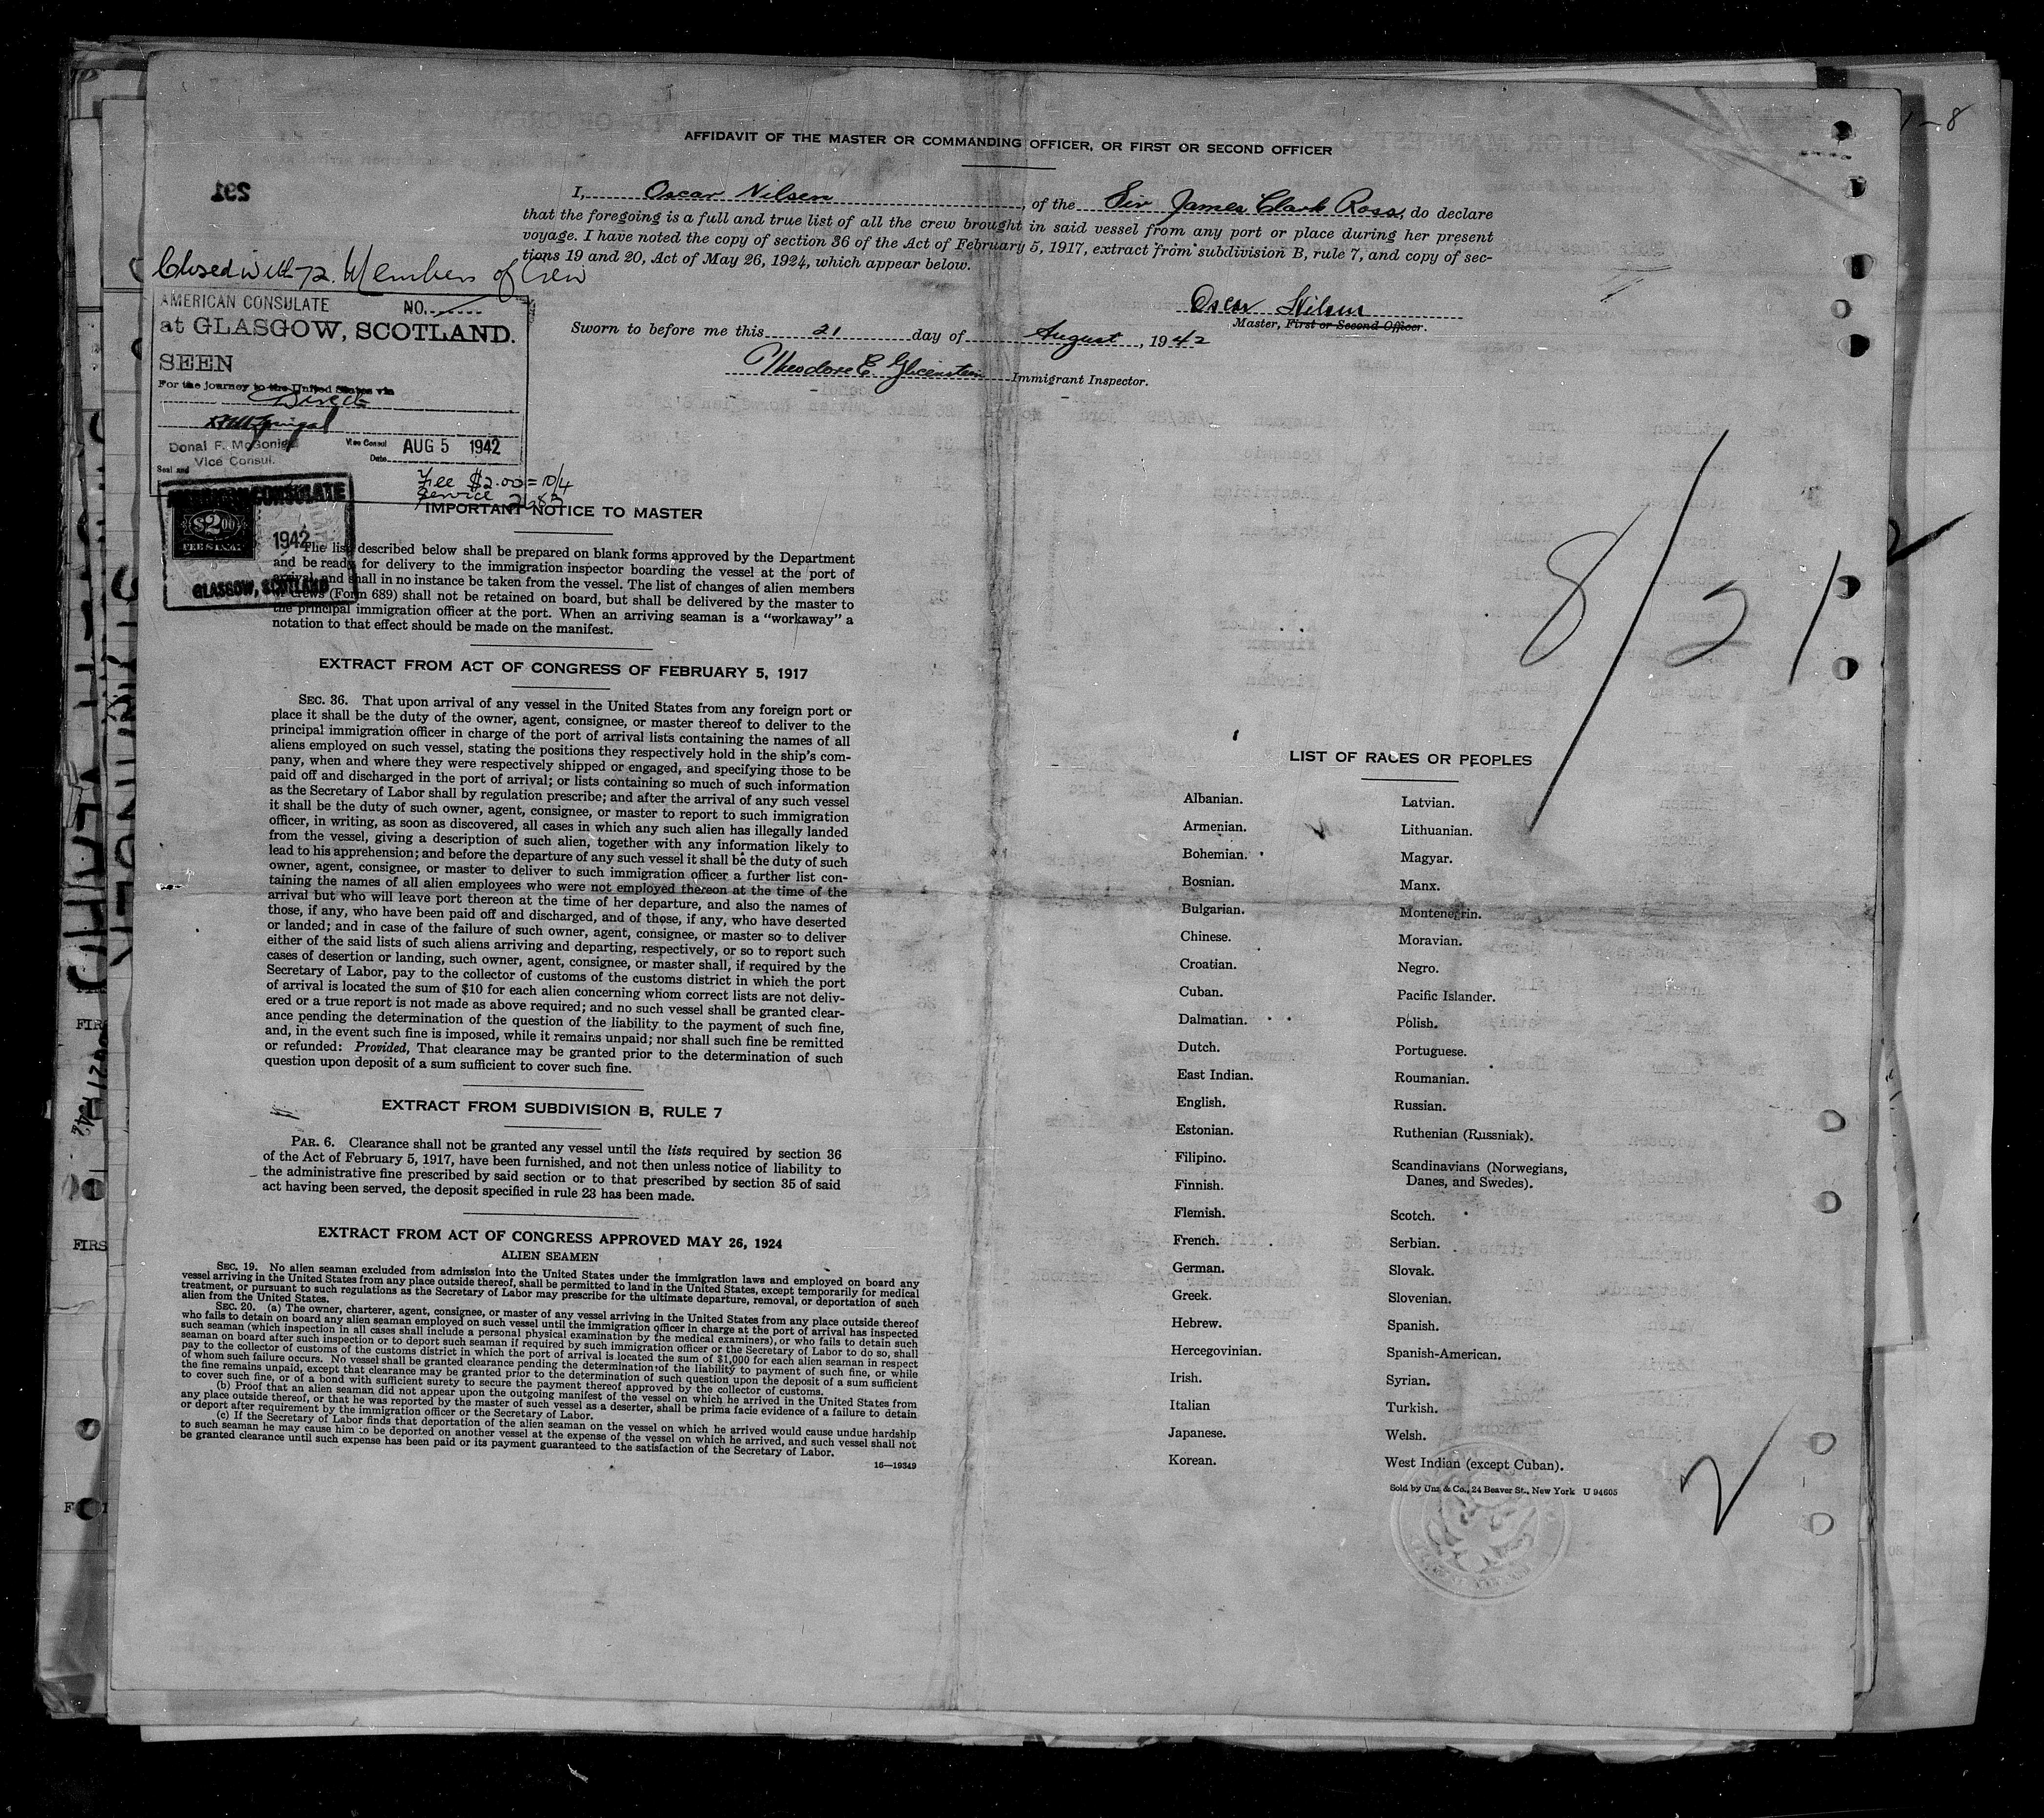 1-8
AFFIDAVIT OF THE MASTER OR COMMANDING OFFICER, OR FIRST OR SECOND OFFICER
291
I, Oscar Nilsen, of the Sir James Clark Ross, do declare
that the foregoing is a full and true list of all the crew brought in said vessel from any port or place during her present
voyage. I have noted the copy of section 36 of the Act of February 5, 1917, extract from subdivision B, rule 7, and copy of sec-
tions 19 and 20, Act of May 26, 1924, which appear below.
Closed with 72. Members of Crew
Oscar Nilsen
Master, First or Second Officer.
Sworn to before me this 21 day of August, 1942
Theodore E. Immigrant Inspector.
AMERICAN CONSULATE NO.
at GLASGOW, SCOTLAND.
SEEN
For the journey to the United States via
Direct
Donal F. McGonigal
Vice Consul.
Vice Consul
Date AUG 5 1942
Seal and
Fee $2.00 = 10/4
Service 2687
AMERICAN CONSULATE
$2.00
FEE STAMP
1942
GLASGOW, SCOTLAND
IMPORTANT NOTICE TO MASTER
The list described below shall be prepared on blank forms approved by the Department
and be ready for delivery to the immigration inspector boarding the vessel at the port of
arrival, and shall in no instance be taken from the vessel. The list of changes of alien members
of crews (Form 689) shall not be retained on board, but shall be delivered by the master to
the principal immigration officer at the port. When an arriving seaman is a "workaway" a
notation to that effect should be made on the manifest.
EXTRACT FROM ACT OF CONGRESS OF FEBRUARY 5, 1917
SEC. 36. That upon arrival of any vessel in the United States from any foreign port or
place it shall be the duty of the owner, agent, consignee, or master thereof to deliver to the
principal immigration officer in charge of the port of arrival lists containing the names of all
aliens employed on such vessel, stating the positions they respectively hold in the ship's com-
pany, when and where they were respectively shipped or engaged, and specifying those to be
paid off and discharged in the port of arrival; or lists containing so much of such information
as the Secretary of Labor shall by regulation prescribe; and after the arrival of any such vessel
it shall be the duty of such owner, agent, consignee, or master to report to such immigration
officer, in writing, as soon as discovered, all cases in which any such alien has illegally landed
from the vessel, giving a description of such alien, together with any information likely to
lead to his apprehension; and before the departure of any such vessel it shall be the duty of such
owner, agent, consignee, or master to deliver to such immigration officer a further list con-
taining the names of all alien employees who were not employed thereon at the time of the
arrival but who will leave port thereon at the time of her departure, and also the names of
those, if any, who have been paid off and discharged, and of those, if any, who have deserted
or landed; and in case of the failure of such owner, agent, consignee, or master so to deliver
either of the said lists of such aliens arriving and departing, respectively, or so to report such
cases of desertion or landing, such owner, agent, consignee, or master shall, if required by the
Secretary of Labor, pay to the collector of customs of the customs district in which the port
of arrival is located the sum of $10 for each alien concerning whom correct lists are not deliv-
ered or a true report is not made as above required; and no such vessel shall be granted clear-
ance pending the determination of the question of the liability to the payment of such fine,
and, in the event such fine is imposed, while it remains unpaid; nor shall such fine be remitted
or refunded: Provided, That clearance may be granted prior to the determination of such
question upon deposit of a sum sufficient to cover such fine.
EXTRACT FROM SUBDIVISION B, RULE 7
PAR. 6. Clearance shall not be granted any vessel until the lists required by section 36
of the Act of February 5, 1917, have been furnished, and not then unless notice of liability to
the administrative fine prescribed by said section or to that prescribed by section 35 of said
act having been served, the deposit specified in rule 23 has been made.
EXTRACT FROM ACT OF CONGRESS APPROVED MAY 26, 1924
ALIEN SEAMEN
SEC. 19. No alien seaman excluded from admission into the United States under the immigration laws and employed on board any
vessel arriving in the United States from any place outside thereof, shall be permitted to land in the United States, except temporarily for medical
treatment, or pursuant to such regulations as the Secretary of Labor may prescribe for the ultimate departure, removal, or deportation of such
alien from the United States.
SEC. 20. (a) The owner, charterer, agent, consignee, or master of any vessel arriving in the United States from any place outside thereof
who fails to detain on board any alien seaman employed on such vessel until the immigration officer in charge at the port of arrival has inspected
such seaman (which inspection in all cases shall include a personal physical examination by the medical examiners), or who fails to detain such
seaman on board after such inspection or to deport such seaman if required by such immigration officer or the Secretary of Labor to do so, shall
pay to the collector of customs of the customs district in which the port of arrival is located the sum of $1,000 for each alien seaman in respect
of whom such failure occurs. No vessel shall be granted clearance pending the determination of the liability to payment of such fine, or while
the fine remains unpaid, except that clearance may be granted prior to the determination of such question upon the deposit of a sum sufficient
to cover such fine, or of a bond with sufficient surety to secure the payment thereof approved by the collector of customs.
(b) Proof that an alien seaman did not appear upon the outgoing manifest of the vessel on which he arrived in the United States from
any place outside thereof, or that he was reported by the master of such vessel as a deserter, shall be prima facie evidence of a failure to detain
or deport after requirement by the immigration officer or the Secretary of Labor.
(c) If the Secretary of Labor finds that deportation of the alien seaman on the vessel on which he arrived would cause undue hardship
to such seaman he may cause him to be deported on another vessel at the expense of the vessel on which he arrived, and such vessel shall not
be granted clearance until such expense has been paid or its payment guaranteed to the satisfaction of the Secretary of Labor.
16—19349
8/21
LIST OF RACES OR PEOPLES
Albanian.
Armenian.
Bohemian.
Bosnian.
Bulgarian.
Chinese.
Croatian.
Cuban.
Dalmatian.
Dutch.
East Indian.
English.
Estonian.
Filipino.
Finnish.
Flemish.
French.
German.
Greek.
Hebrew.
Hercegovinian.
Irish.
Italian
Japanese.
Korean.
Latvian.
Lithuanian.
Magyar.
Manx.
Montenegrin.
Moravian.
Negro.
Pacific Islander.
Polish.
Portuguese.
Roumanian.
Russian.
Ruthenian (Russniak).
Scandinavians (Norwegians,
Danes, and Swedes).
Scotch.
Serbian.
Slovak.
Slovenian.
Spanish.
Spanish-American.
Syrian.
Turkish.
Welsh.
West Indian (except Cuban).
Sold by Unz & Co., 24 Beaver St., New York U 94605
2